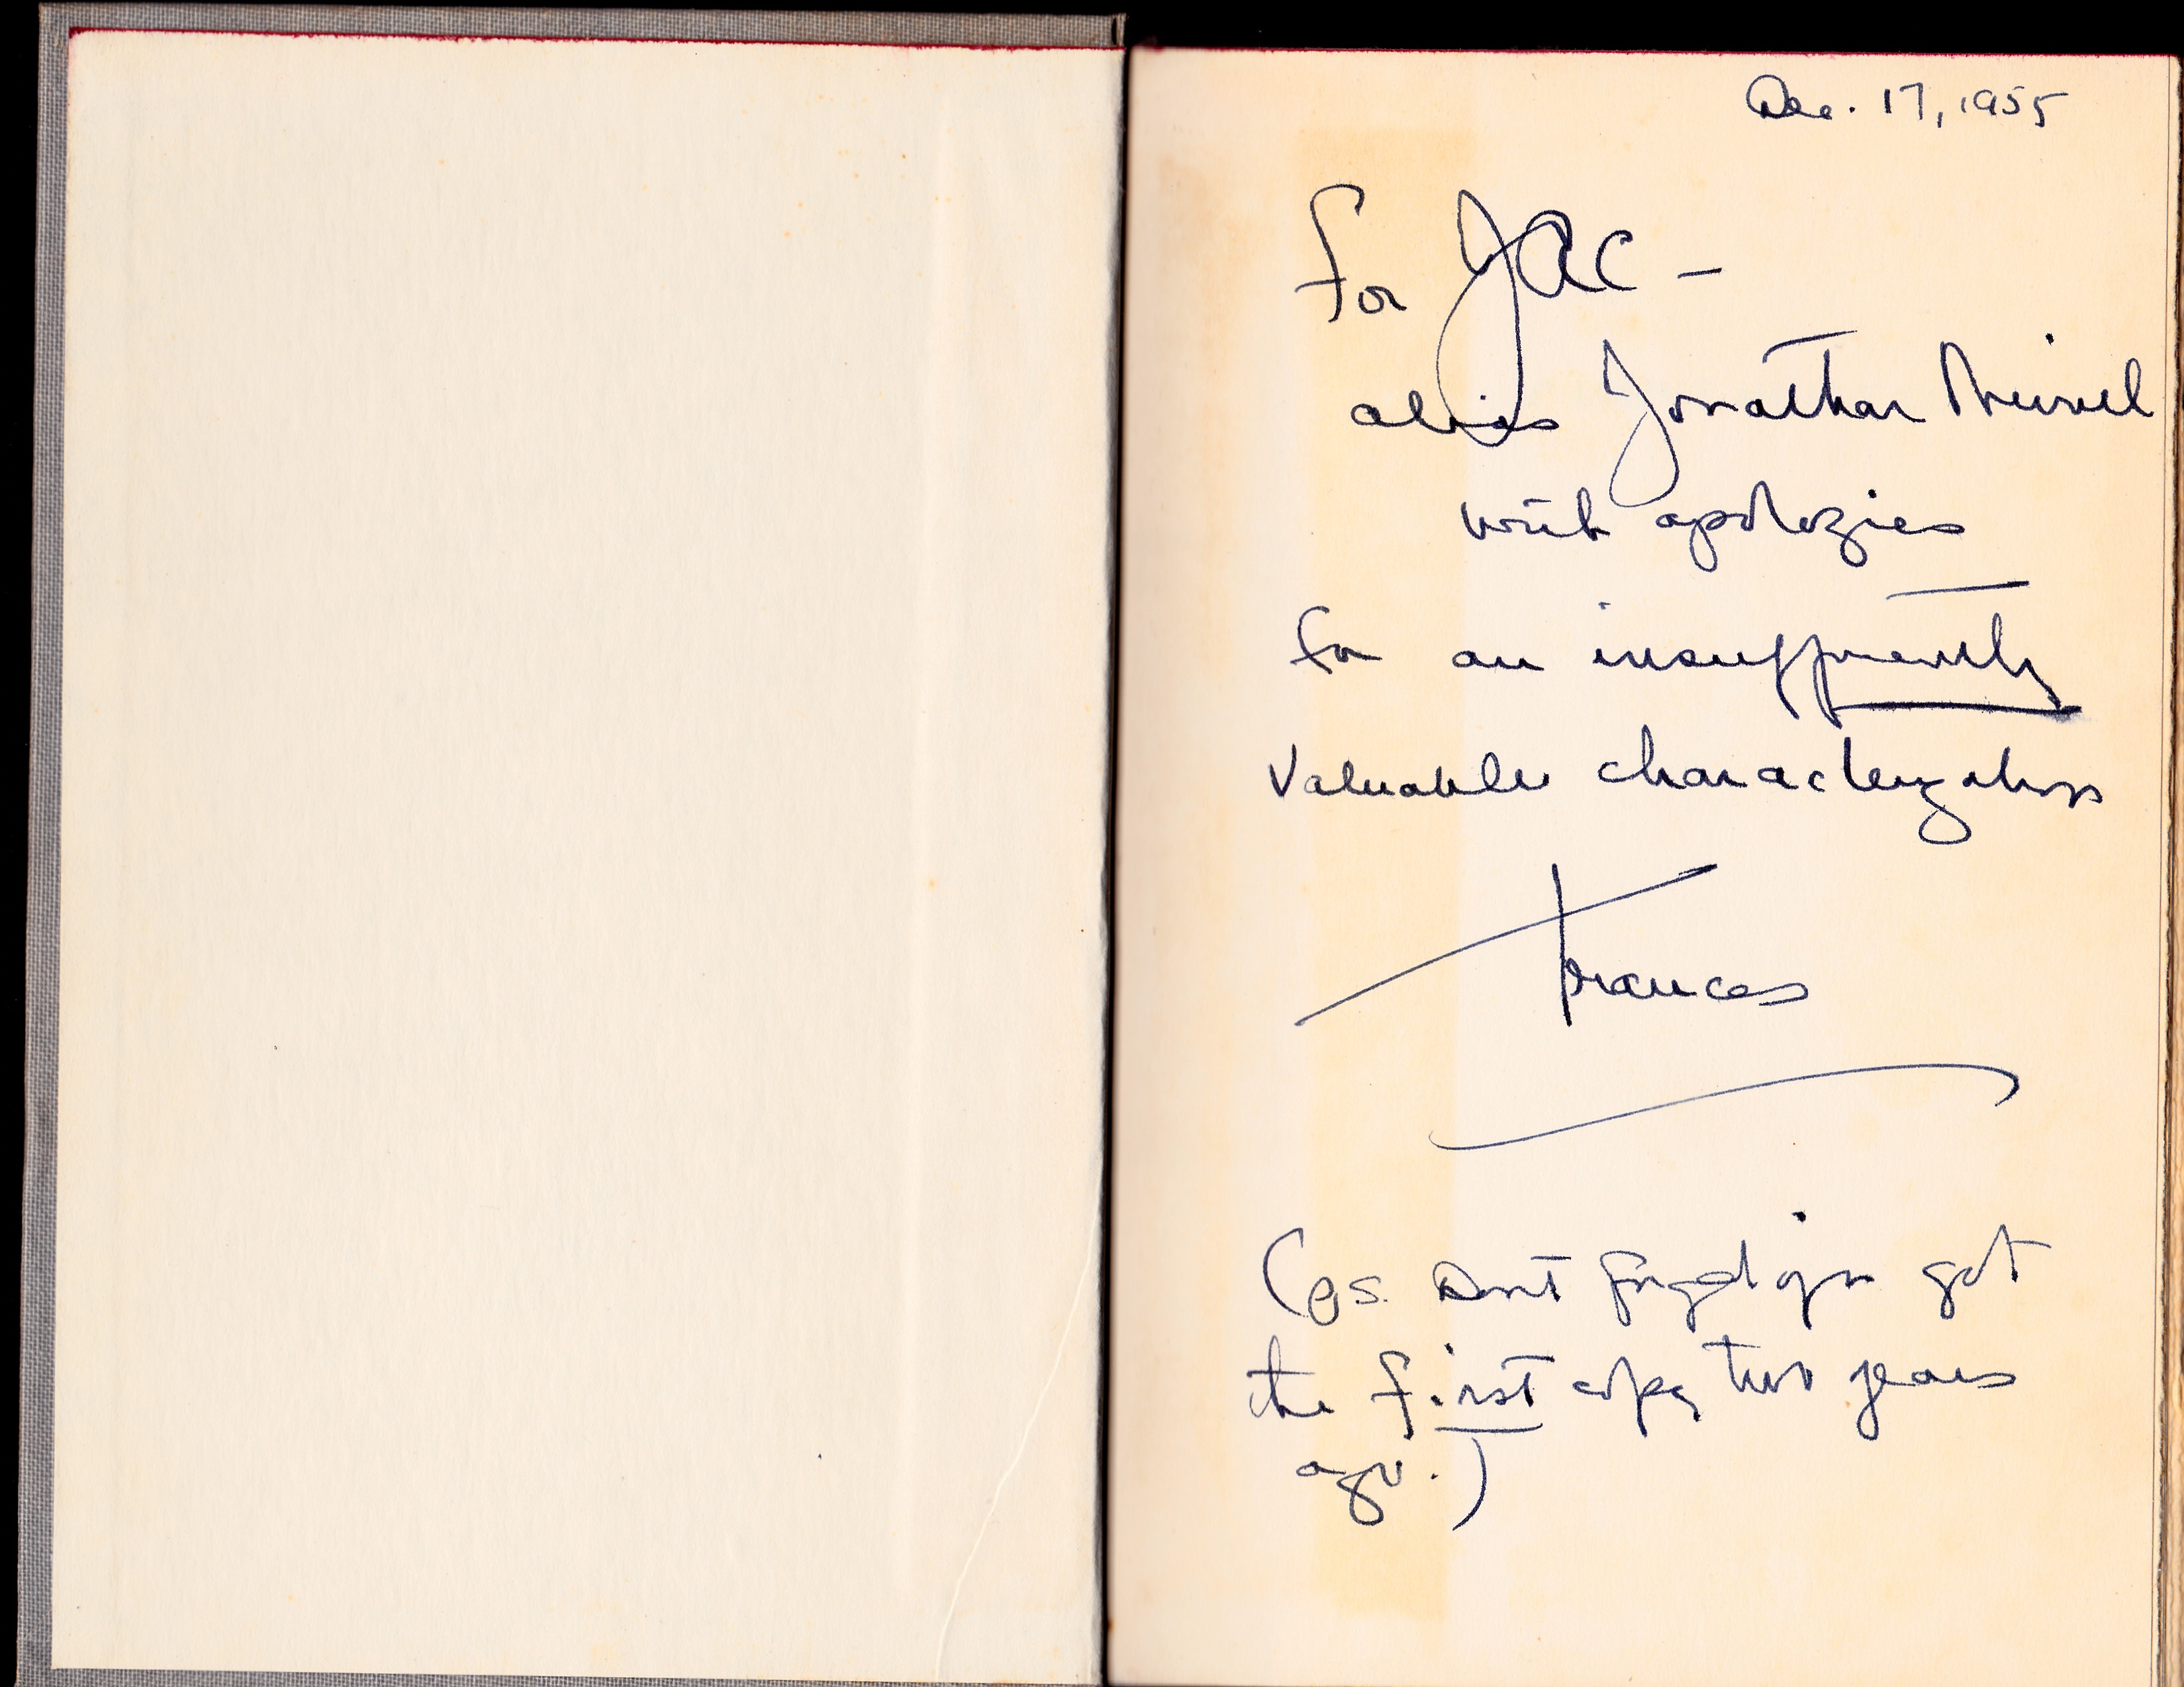 Dec. 17, 1955
For JAC –
alias Jonathan
with apologies
for an insufficiently
valuable characterization
Frances
(P.S. Don't forget you got
the first copy two years
ago.)